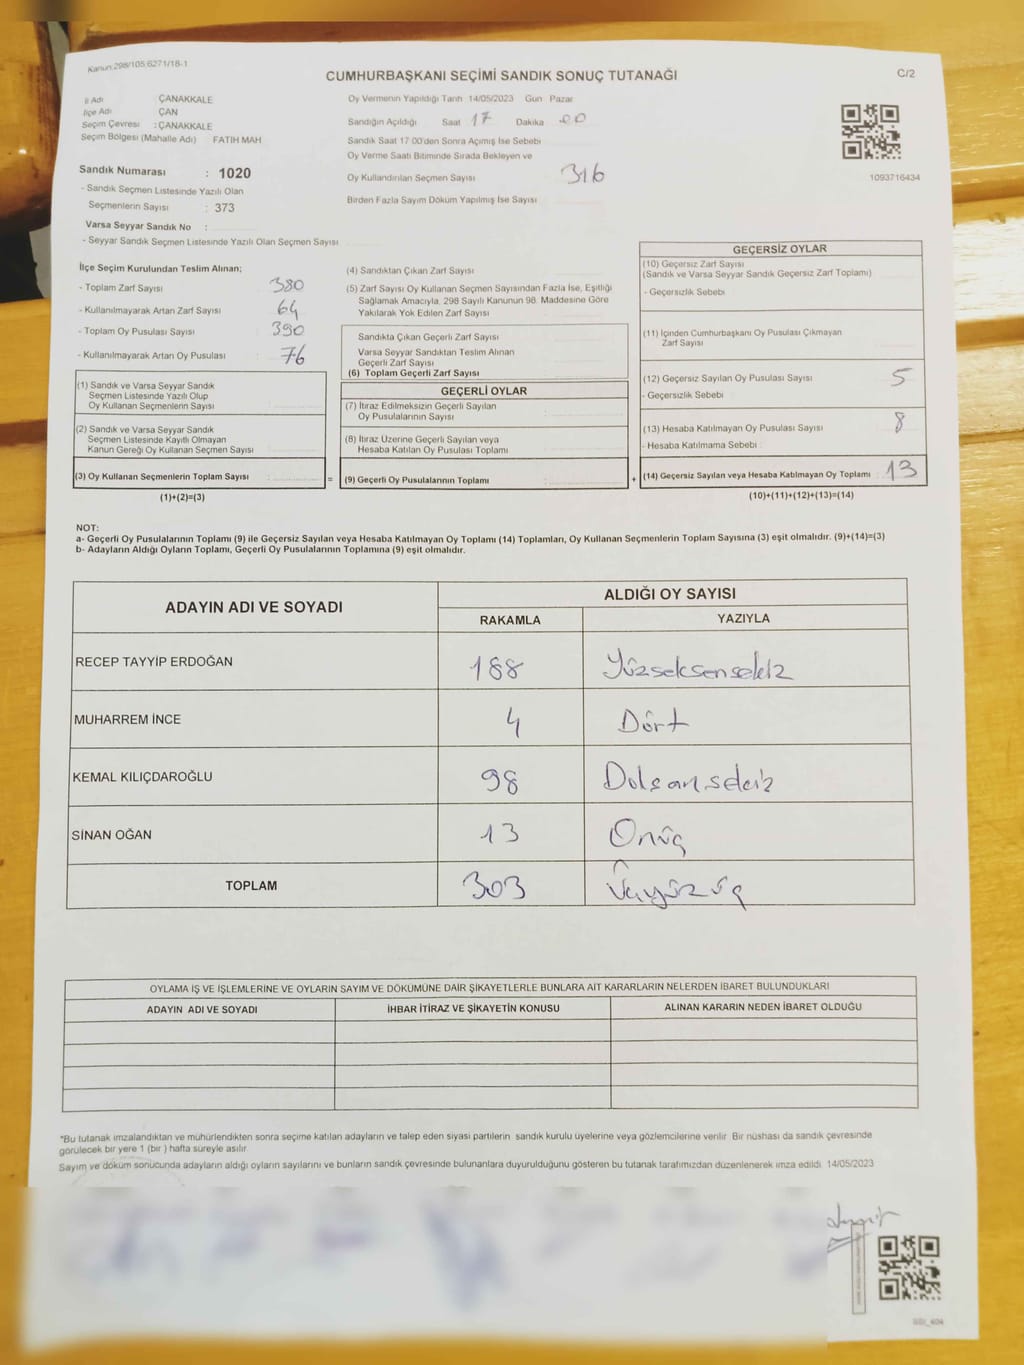 Kanun:298/105,6271/18-1
CUMHURBAŞKANI SEÇİMİ SANDIK SONUÇ TUTANAĞI
C/2
İl Adı : ÇANAKKALE
İlçe Adı : ÇAN
Seçim Çevresi : ÇANAKKALE
Seçim Bölgesi (Mahalle Adı) FATİH MAH
Sandık Numarası : 1020
- Sandık Seçmen Listesinde Yazılı Olan
Seçmenlerin Sayısı : 373
Varsa Seyyar Sandık No :
- Seyyar Sandık Seçmen Listesinde Yazılı Olan Seçmen Sayısı
Oy Vermenin Yapıldığı Tarih 14/05/2023 Gün Pazar
Sandığın Açıldığı Saat 17 Dakika 00
Sandık Saat 17 00'den Sonra Açımış İse Sebebi
Oy Verme Saati Bitiminde Sırada Bekleyen ve
Oy Kullandırılan Seçmen Sayısı 316
Birden Fazla Sayım Döküm Yapılmış İse Sayısı
1093716434
İlçe Seçim Kurulundan Teslim Alınan;
- Toplam Zarf Sayısı 380
- Kullanılmayarak Artan Zarf Sayısı 64
- Toplam Oy Pusulası Sayısı 390
- Kullanılmayarak Artan Oy Pusulası 76
(1) Sandık ve Varsa Seyyar Sandık
Seçmen Listesinde Yazılı Olup
Oy Kullanan Seçmenlerin Sayısı
(2) Sandık ve Varsa Seyyar Sandık
Seçmen Listesinde Kayıtlı Olmayan
Kanun Gereği Oy Kullanan Seçmen Sayısı
(3) Oy Kullanan Seçmenlerin Toplam Sayısı
=
(1)+(2)=(3)
(4) Sandıktan Çıkan Zarf Sayısı
(5) Zarf Sayısı Oy Kullanan Seçmen Sayısından Fazla İse, Eşitliği
Sağlamak Amacıyla, 298 Sayılı Kanunun 98. Maddesine Göre
Yakılarak Yok Edilen Zarf Sayısı
Sandıkta Çıkan Geçerli Zarf Sayısı
Varsa Seyyar Sandıktan Teslim Alınan
Geçerli Zarf Sayısı
(6) Toplam Geçerli Zarf Sayısı
GEÇERLİ OYLAR
(7) İtiraz Edilmeksizin Geçerli Sayılan
Oy Pusulalarının Sayısı
(8) İtiraz Üzerine Geçerli Sayılan veya
Hesaba Katılan Oy Pusulası Toplamı
(9) Geçerli Oy Pusulalarının Toplamı
+
GEÇERSİZ OYLAR
(10) Geçersiz Zarf Sayısı
(Sandık ve Varsa Seyyar Sandık Geçersiz Zarf Toplamı)
- Geçersizlik Sebebi
(11) İçinden Cumhurbaşkanı Oy Pusulası Çıkmayan
Zarf Sayısı
(12) Geçersiz Sayılan Oy Pusulası Sayısı 5
- Geçersizlik Sebebi
(13) Hesaba Katılmayan Oy Pusulası Sayısı 8
- Hesaba Katılmama Sebebi
(14) Geçersiz Sayılan veya Hesaba Katılmayan Oy Toplamı 13
(10)+(11)+(12)+(13)=(14)
NOT:
a- Geçerli Oy Pusulalarının Toplamı (9) ile Geçersiz Sayılan veya Hesaba Katılmayan Oy Toplamı (14) Toplamları, Oy Kullanan Seçmenlerin Toplam Sayısına (3) eşit olmalıdır. (9)+(14)=(3)
b- Adayların Aldığı Oyların Toplamı, Geçerli Oy Pusulalarının Toplamına (9) eşit olmalıdır.
ADAYIN ADI VE SOYADI
ALDIĞI OY SAYISI
RAKAMLA YAZIYLA
RECEP TAYYİP ERDOĞAN 188 Yüzseksensekiz
MUHARREM İNCE 4 Dört
KEMAL KILIÇDAROĞLU 98 Doksansekiz
SİNAN OĞAN 13 Onüç
TOPLAM 303 Üçyüzüç
OYLAMA İŞ VE İŞLEMLERİNE VE OYLARIN SAYIM VE DÖKÜMÜNE DAİR ŞİKAYETLERLE BUNLARA AİT KARARLARIN NELERDEN İBARET BULUNDUKLARI
ADAYIN ADI VE SOYADI İHBAR İTİRAZ VE ŞİKAYETİN KONUSU ALINAN KARARIN NEDEN İBARET OLDUĞU
*Bu tutanak imzalandıktan ve mühürlendikten sonra seçime katılan adayların ve talep eden siyasi partilerin sandık kurulu üyelerine veya gözlemcilerine verilir. Bir nüshası da sandık çevresinde
görülecek bir yere 1 (bir ) hafta süreyle asılır.
Sayım ve döküm sonucunda adayların aldığı oyların sayılarını ve bunların sandık çevresinde bulunanlara duyurulduğunu gösteren bu tutanak tarafımızdan düzenlenerek imza edildi. 14/05/2023